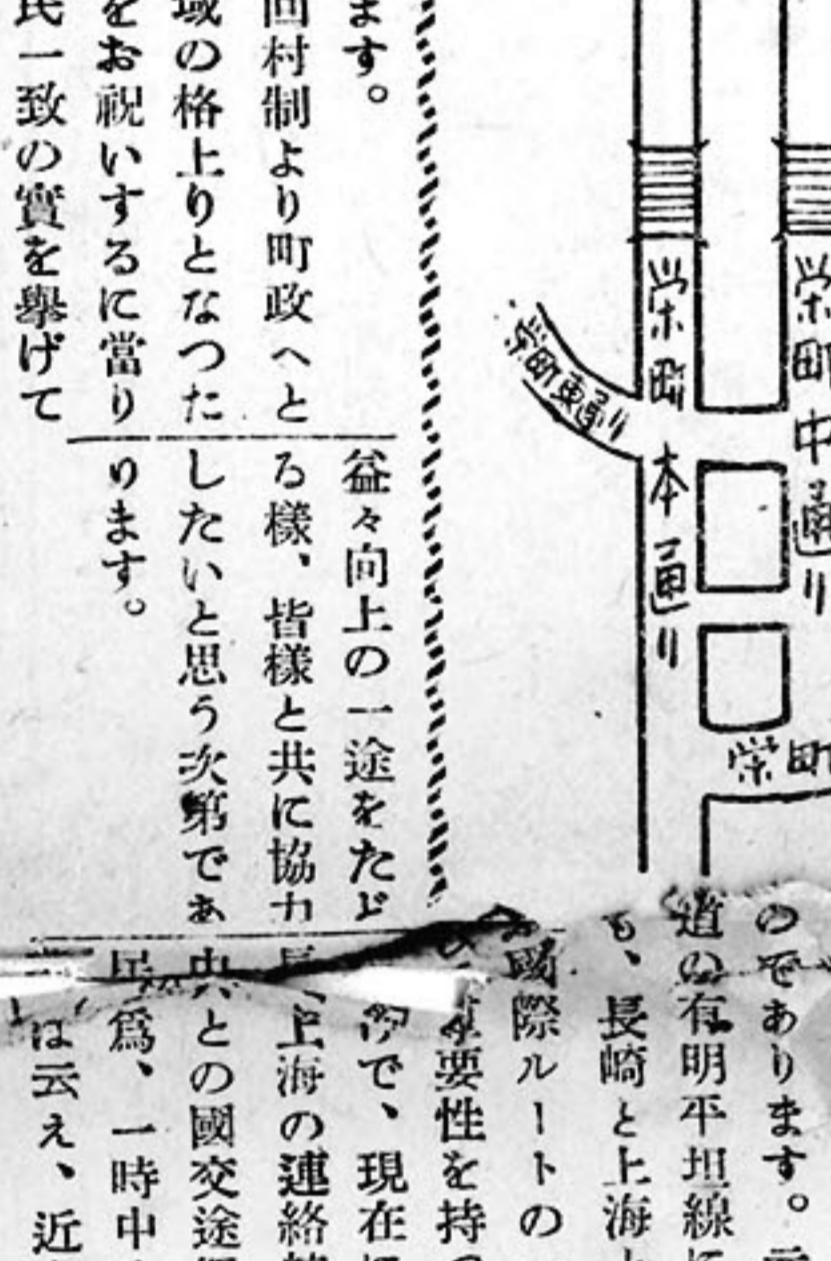 栄町中通り
栄町本通り
栄町東通り
栄町
ます。
村制より町政へと
域の格上りとなつた
をお祝いするに當り
民一致の實を舉げて
益々向上の一途をたど
る樣、皆樣と共に協力
したいと思う次第であ
ります。
のであります。
道の有明平坦線に
も、長崎と上海
國際ルートの
重要性を持つ
で、現在
上海の連絡
との國交
爲、一時中
は云え、近